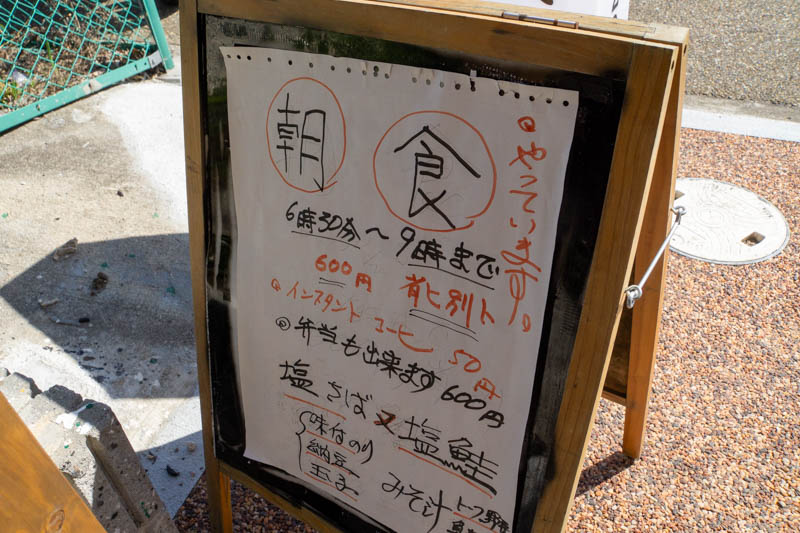 朝食
◎やっています。
6時30分～9時まで
600円 消ヒ別ト
◎インスタントコーヒー 50円
◎弁当も出来ます 600円
塩さば又塩鮭
味付のり
納豆
玉子
みそ汁
トーフ野